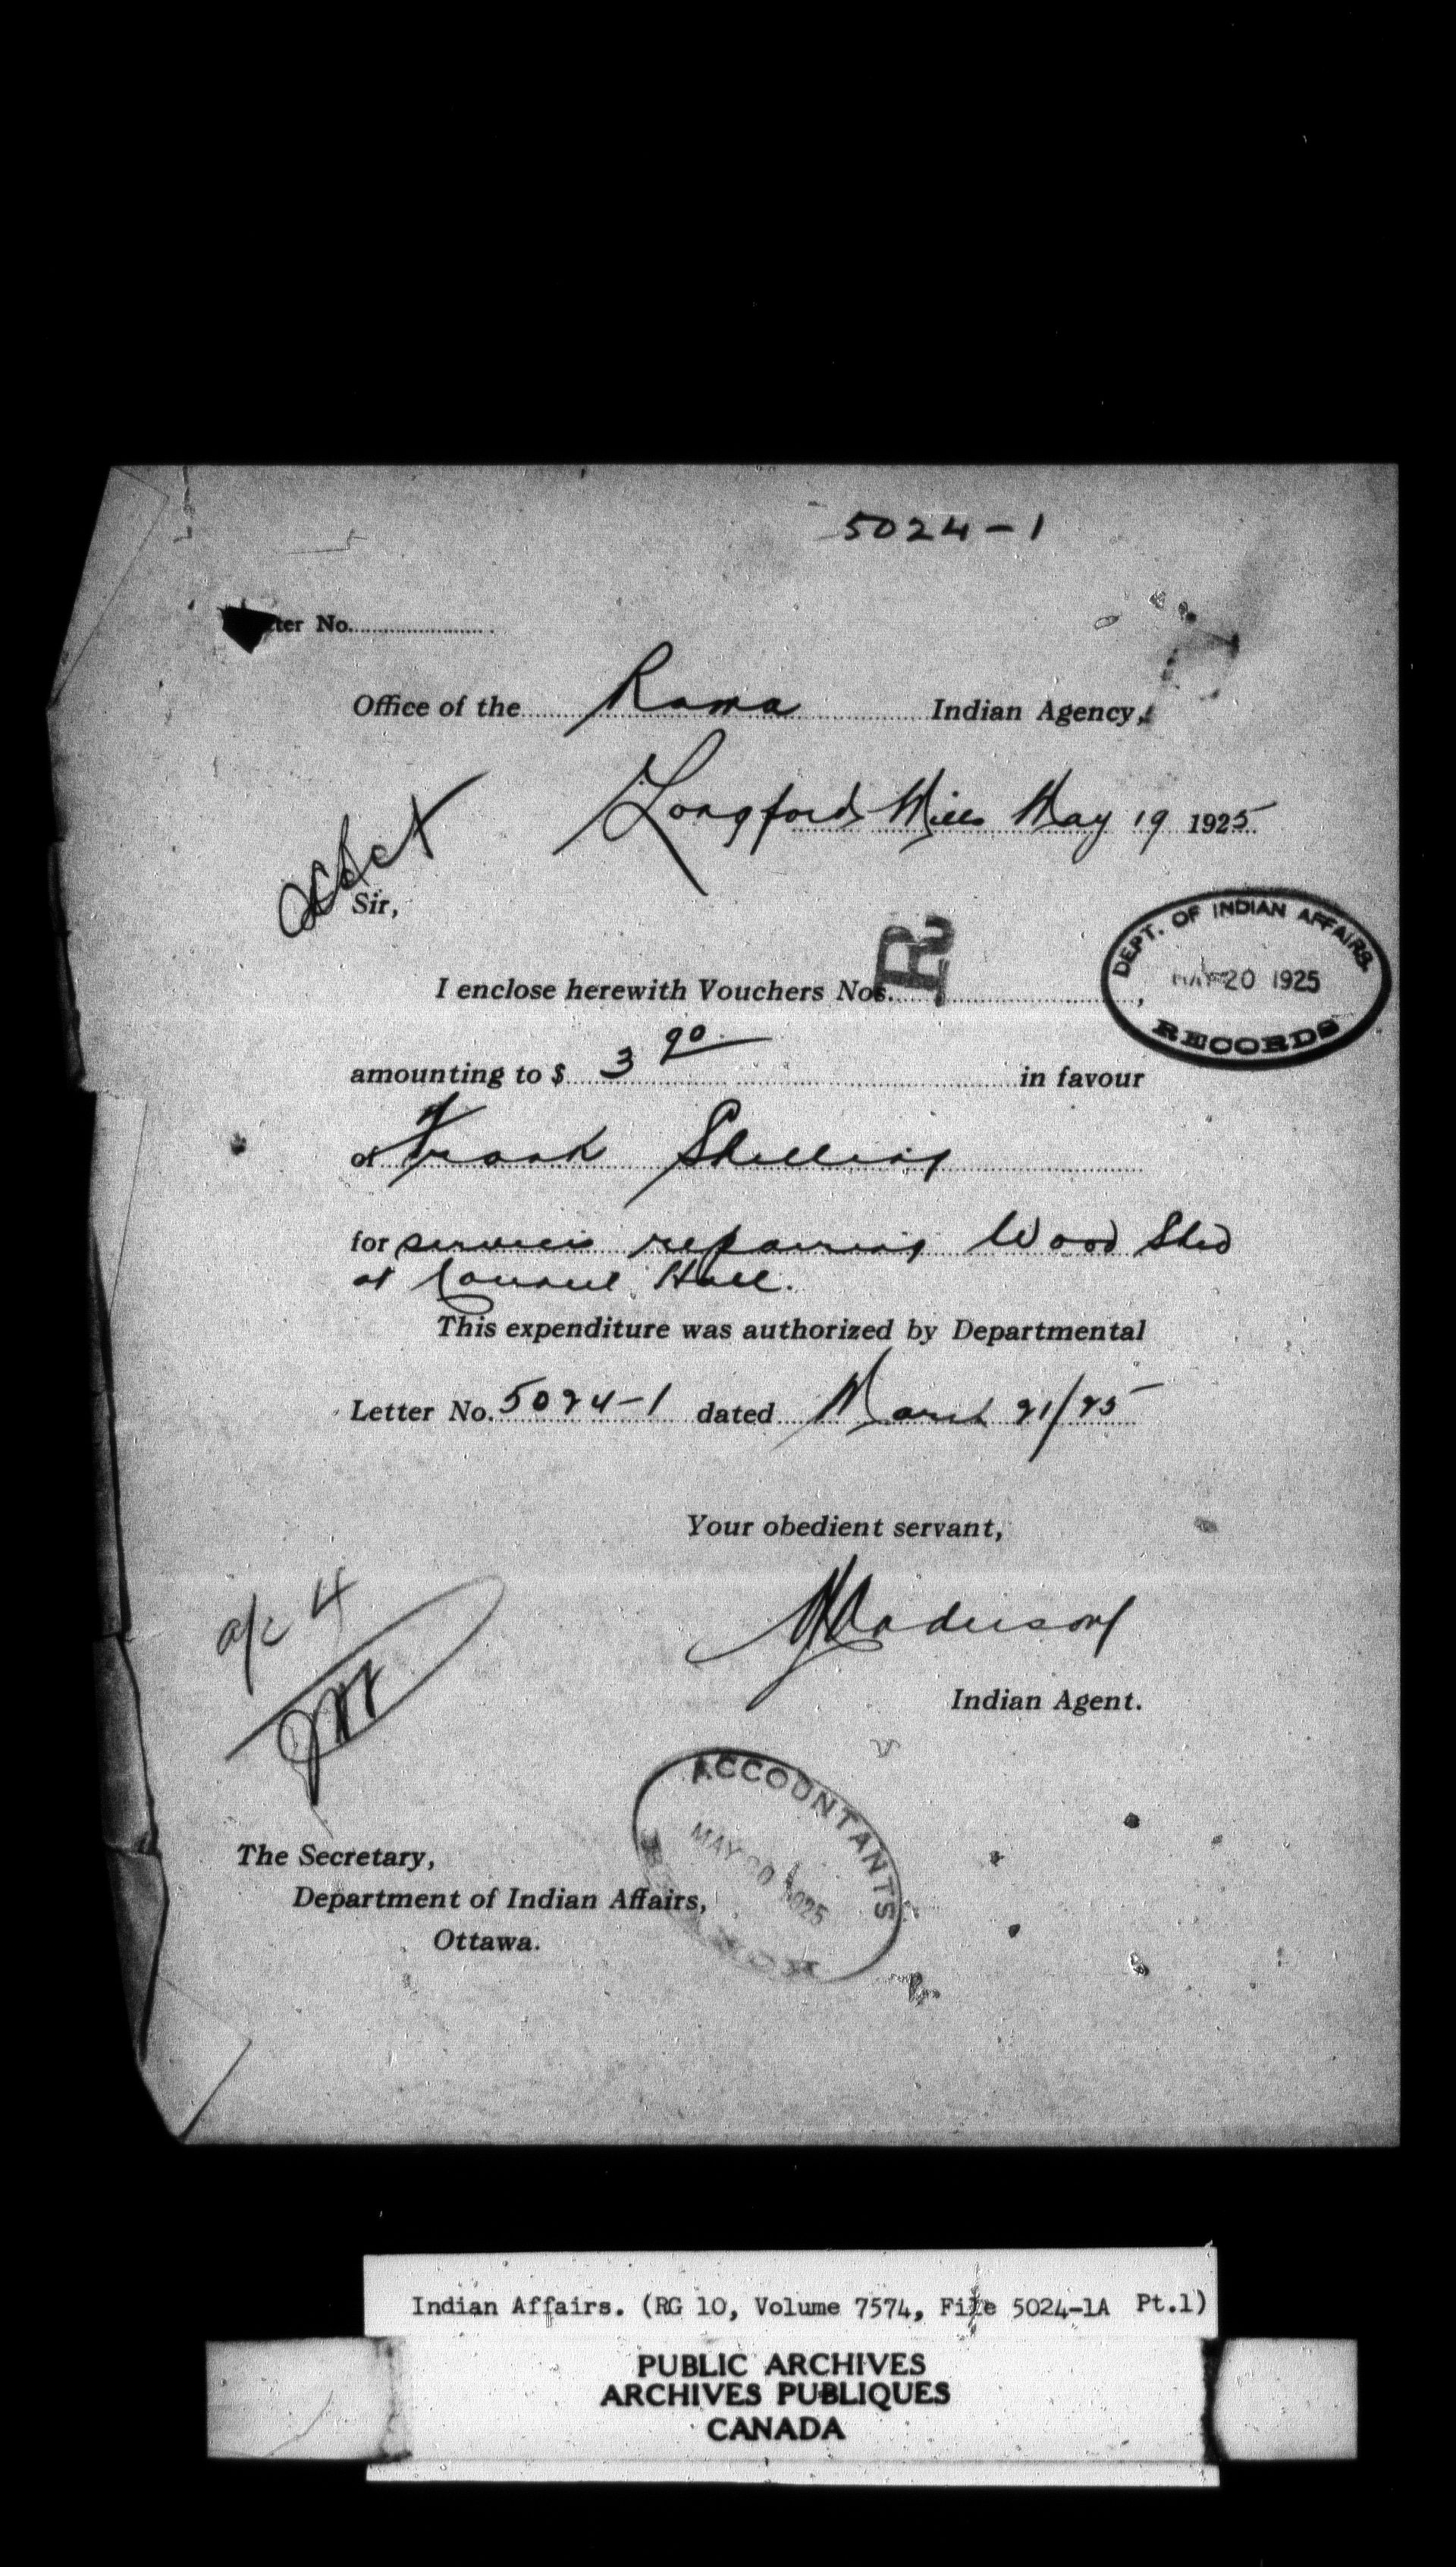 5024-1
ter No.
Office of the Rama Indian Agency,
Longford Mills May 19 1925
Sir,
I enclose herewith Vouchers Nos.
DEPT. OF INDIAN AFFAIRS.
MAY 20 1925
RECORDS
amounting to $ 3 90 in favour
of Frank Shilling
for services repairing Wood Shed
at Council Hall.
This expenditure was authorized by Departmental
Letter No. 5024-1 dated March 21/25
Your obedient servant,
Anderson
Indian Agent.
a/c 4
ACCOUNTANTS
MAY 20 1925
The Secretary,
Department of Indian Affairs,
Ottawa.
Indian Affairs. (RG 10, Volume 7574, File 5024-1A Pt.1)
PUBLIC ARCHIVES
ARCHIVES PUBLIQUES
CANADA